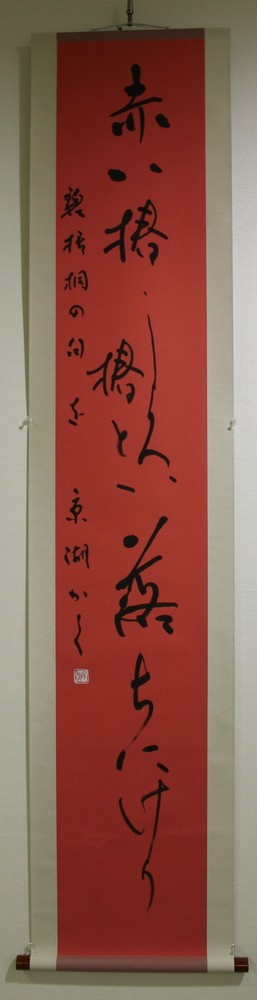 赤い椿しろい
椿と
落ちにけり
碧梧桐の句を 京湖かく